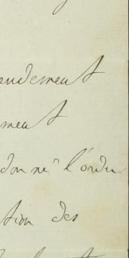 endement
ment
donné l'ordre
tion des